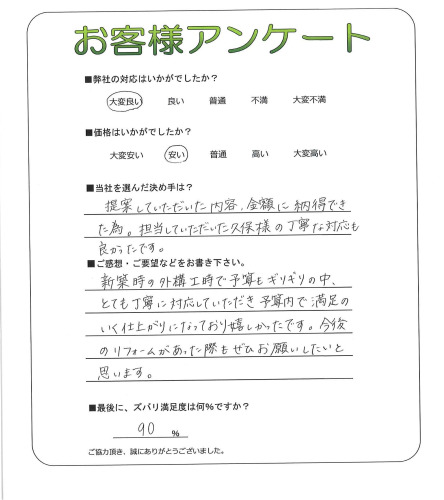 お客様アンケート
■弊社の対応はいかがでしたか?
大変良い 良い 普通 不満 大変不満
■価格はいかがでしたか?
大変安い 安い 普通 高い 大変高い
■当社を選んだ決め手は?
提案していただいた内容、金額に納得でき
た為。担当していただいた久保様の丁寧な対応も
良かったです。
■ご感想・ご要望などをお書き下さい。
新築時の外構工時で予算もギリギリの中、
とても丁寧に対応していただき予算内で満足の
いく仕上がりになっており嬉しかったです。今後
のリフォームがあった際もぜひお願いしたいと
思います。
■最後に、ズバリ満足度は何%ですか?
90 %
ご協力頂き、誠にありがとうございました。